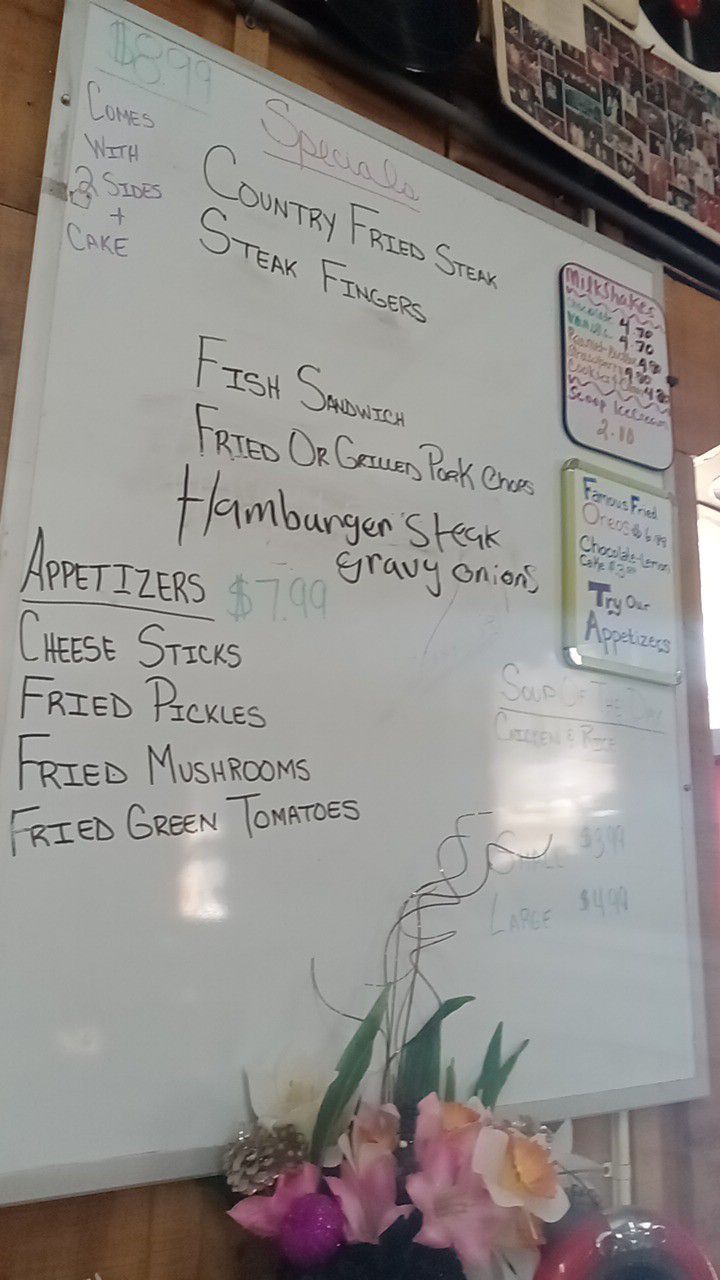 $8.99
COMES
WITH
2 SIDES
+
CAKE
Specials
COUNTRY FRIED STEAK
STEAK FINGERS
FISH SANDWICH
FRIED OR GRILLED PORK CHOPS
Hamburger Steak
gravy onions
APPETIZERS $7.99
CHEESE STICKS
FRIED PICKLES
FRIED MUSHROOMS
FRIED GREEN TOMATOES
Milkshakes
Chocolate 4.70
Vanilla 4.70
Peanut Butter 4.80
Strawberry 4.80
Cookies & 4.80
Scoop Ice Cream
2.10
Famous Fried
Oreos $
Chocolate-Lemon
Cake
Try Our
Appetizers
SOUP OF THE DAY
CHICKEN & RICE
SMALL $3.99
LARGE $4.99